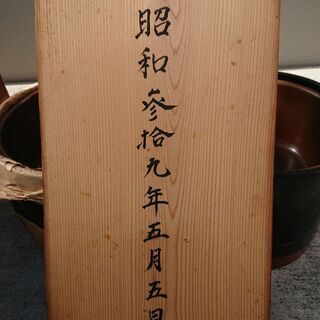 昭和参拾九年五月五日